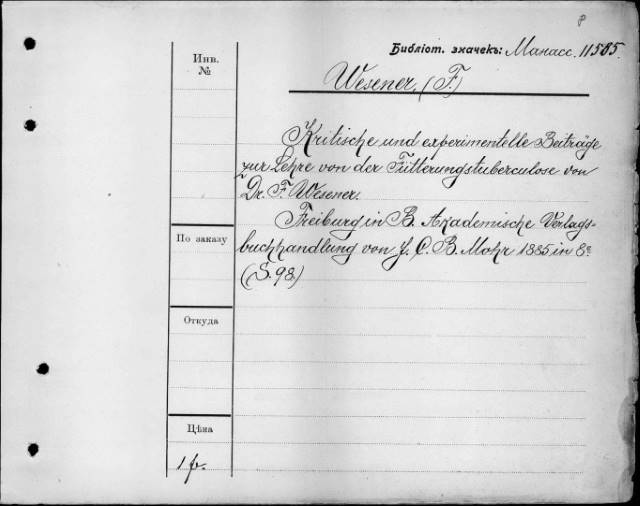 Р
Библіот. значекъ: Манасс. 11585.
Инв.
№
Wesener. (F.)
Kritische und experimentelle Beiträge
zur Lehre von der Fütterungstuberculose von
Dr. F. Wesener.
Freiburg in B. Akademische Verlags-
buchhandlung von J. C. B. Mohr 1885 in 8º
(S. 98.)
По заказу
Откуда
Цѣна
1 р.